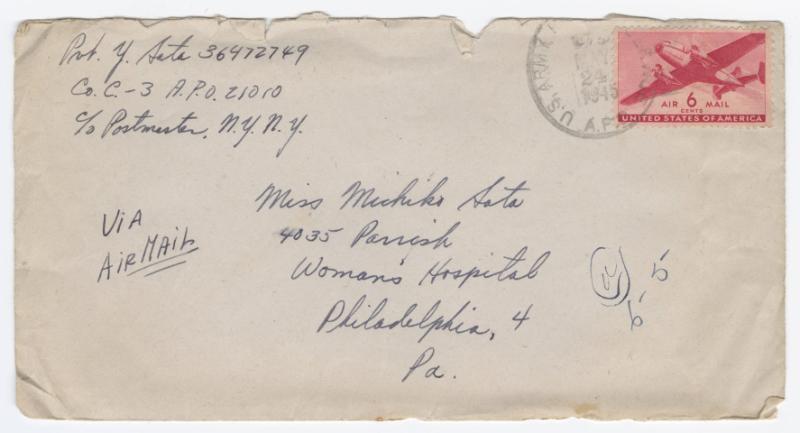 Pvt. Y. Sata 36972749
Co. C.-3 A.P.O. 21010
c/o Postmaster, N.Y. N.Y.
U.S. ARMY
24
1945
A.P.O.
AIR 6 MAIL
CENTS
UNITED STATES OF AMERICA
VIA
AIR MAIL
Miss Michiko Sata
4035 Parrish
Woman's Hospital
Philadelphia, 4
Pa.